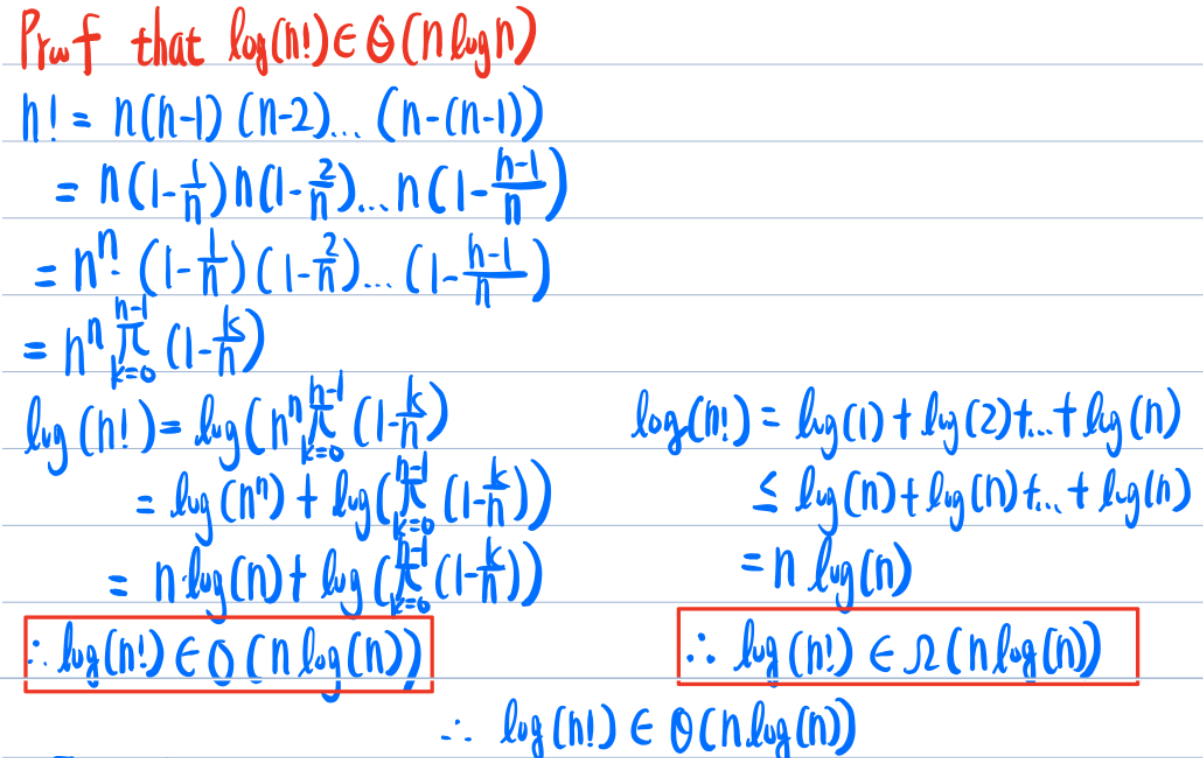 Proof that log(n!) ∈ Θ(n log n)
n! = n(n-1)(n-2)...(n-(n-1))
= n(1-1/n)n(1-2/n)...n(1-(n-1)/n)
= nⁿ·(1-1/n)(1-2/n)...(1-(n-1)/n)
= nⁿ π_{k=0}^{n-1} (1-k/n)
log(n!) = log(nⁿ π_{k=0}^{n-1} (1-k/n)
= log(nⁿ) + log(π_{k=0}^{n-1} (1-k/n))
= n·log(n) + log(π_{k=0}^{n-1} (1-k/n))
∴ log(n!) ∈ O(n log(n))
log(n!) = log(1) + log(2) + ... + log(n)
≤ log(n) + log(n) + ... + log(n)
= n log(n)
∴ log(n!) ∈ Ω(n log(n))
∴ log(n!) ∈ Θ(n log(n))